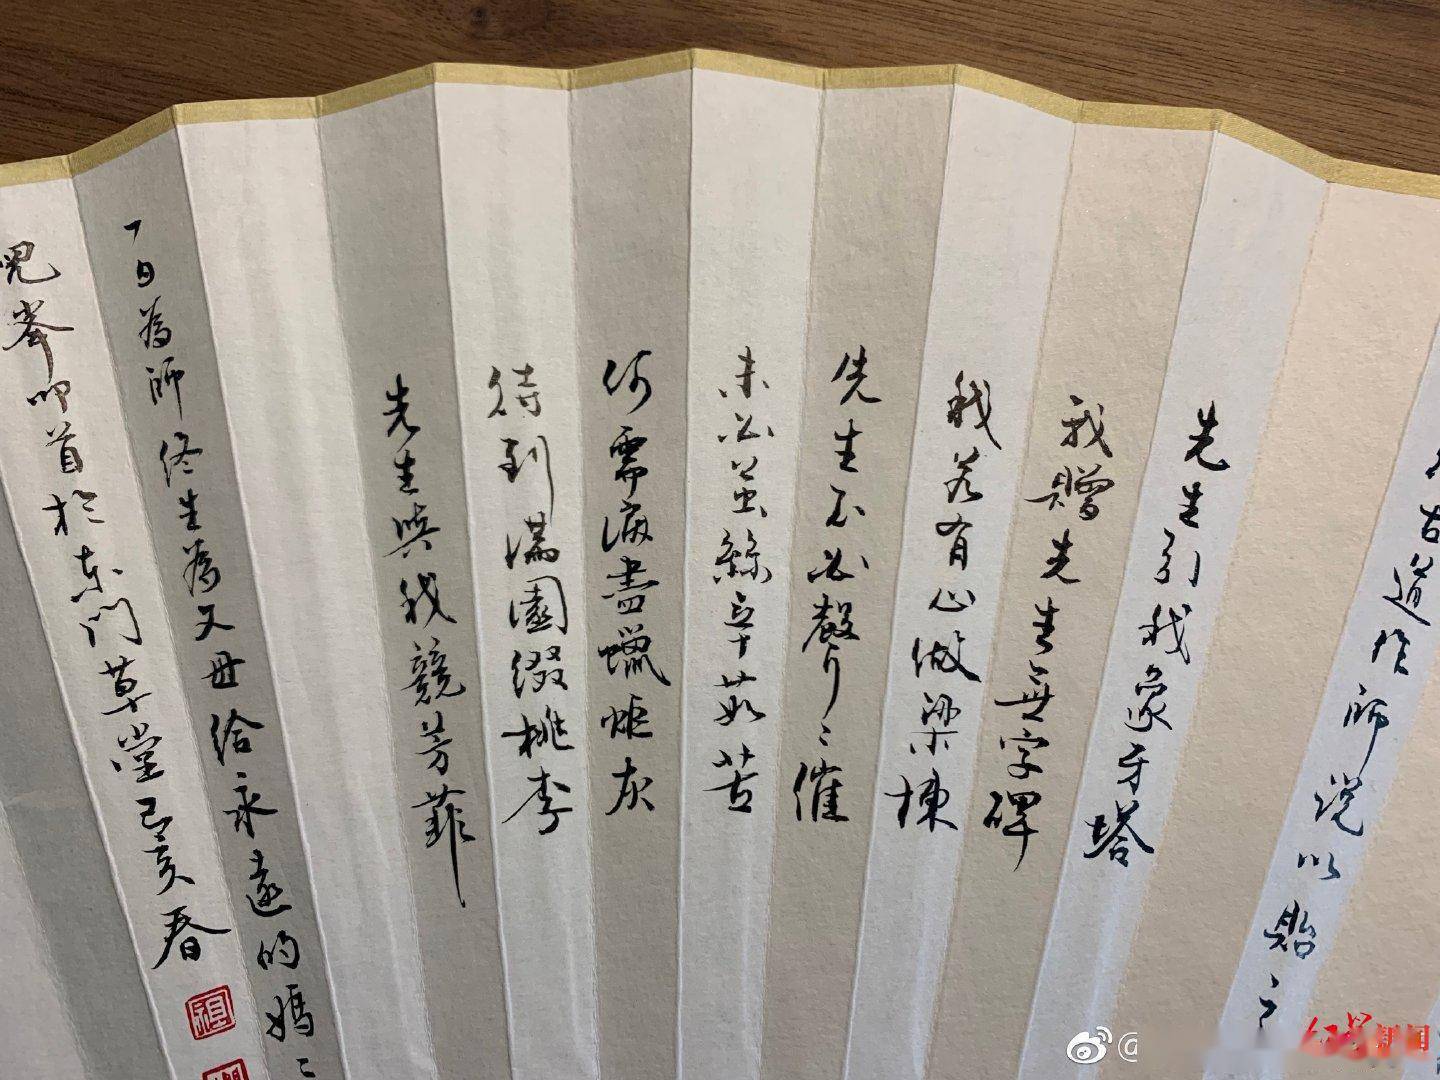 古道作師說以貽之
先生引我象牙塔
我贈先生無字碑
我若有心做梁棟
先生不必聲〻催
未必茧絲辛茹苦
何需淚盡蠟炬灰
待到滿園綴桃李
先生與我競芳菲
一日為師终生為父母給永遠的媽〻
兒峯叩首於東門草堂己亥春
@
红星新闻